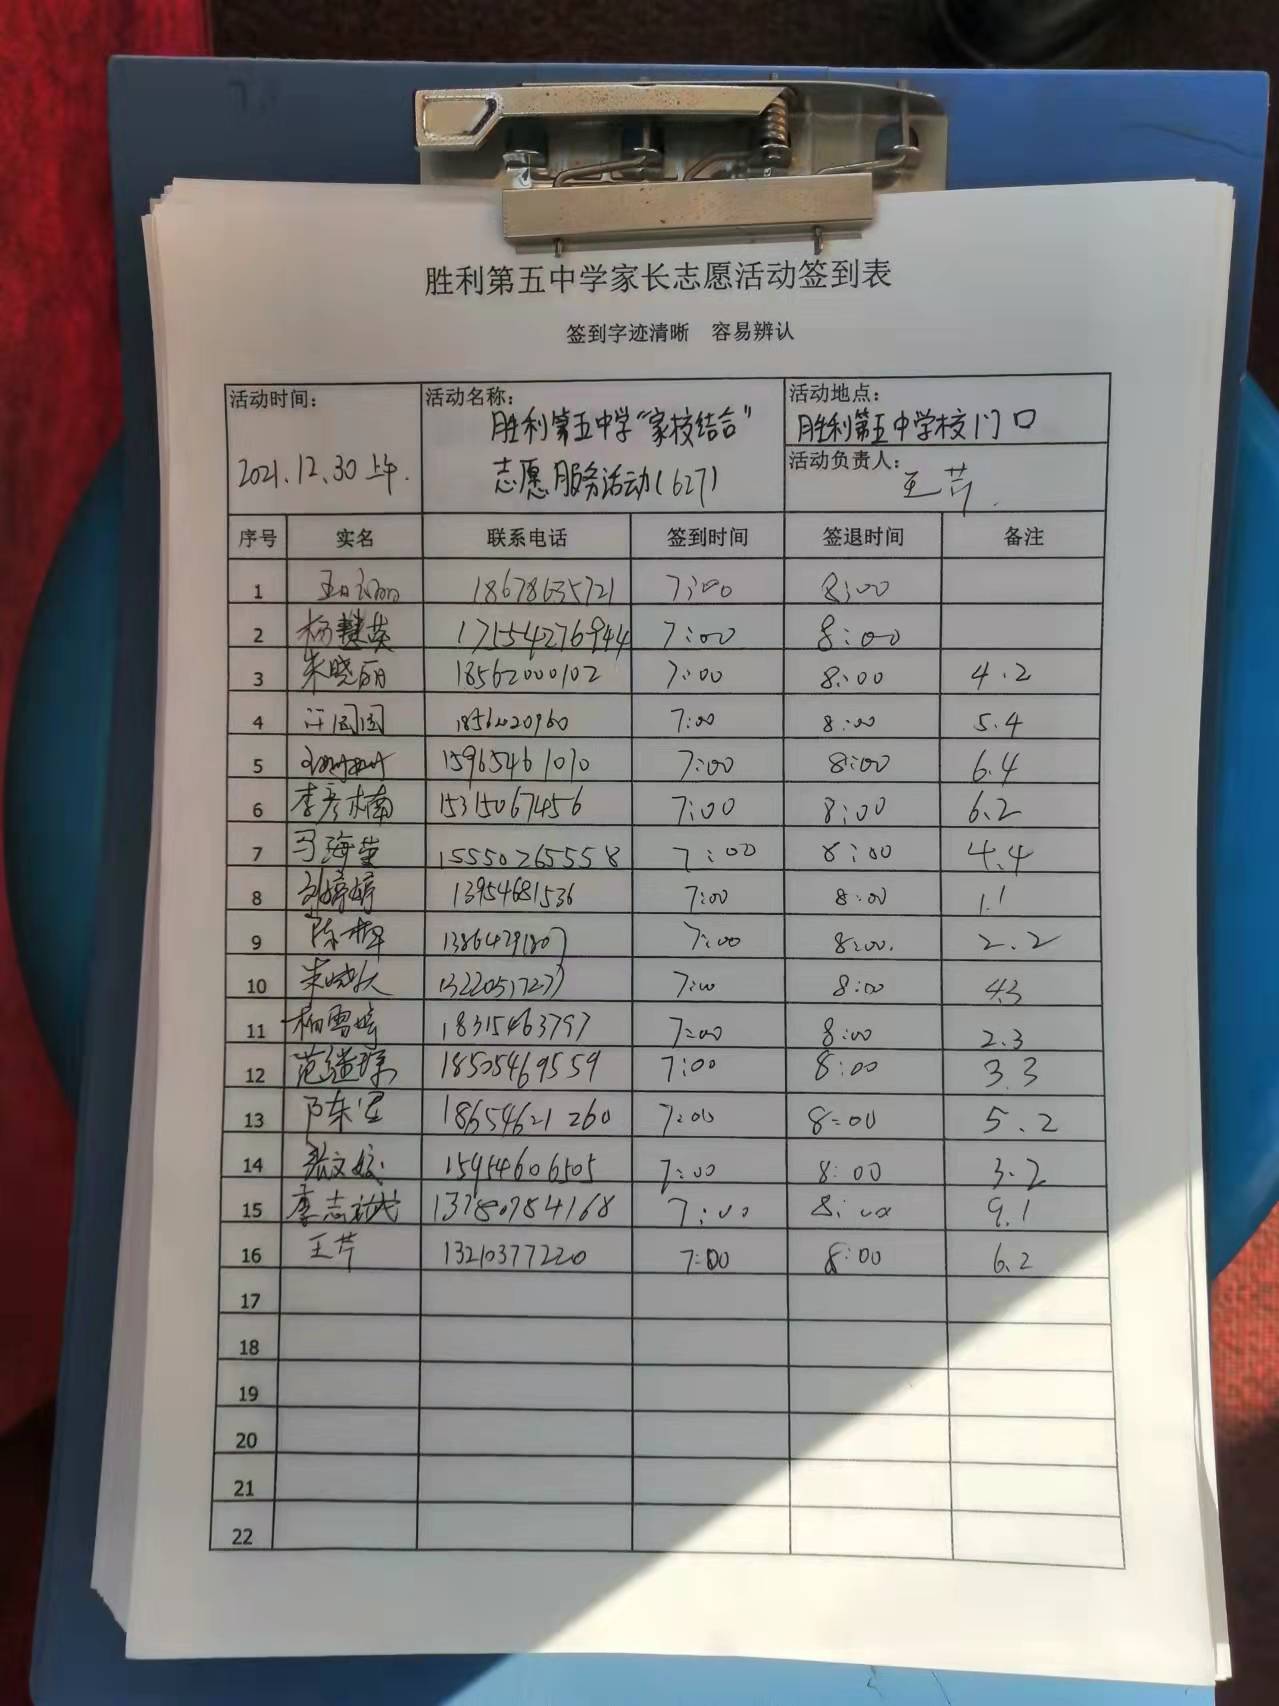 胜利第五中学家长志愿活动签到表
签到字迹清晰 容易辨认
活动时间：
2021.12.30上午.
活动名称：
胜利第五中学“家校结合”
志愿服务活动(627)
活动地点：
胜利第五中学校门口
活动负责人：
王芹.
序号 实名 联系电话 签到时间 签退时间 备注
1 18678635721 7:00 8:00
2 杨慧英 17154276944 7:00 8:00
3 朱晓丽 18562000102 7:00 8:00 4.2
4 7:00 8:00 5.4
5 15965461010 7:00 8:00 6.4
6 李彦楠 15315067456 7:00 8:00 6.2
7 马海莹 15550265558 7:00 8:00 4.4
8 刘婷婷 13954681536 7:00 8:00 1.1
9 7:00 8:00. 2.2
10 7:00 8:00 4.3
11 杨雪婷 18315463797 7:00 8:00 2.3
12 18505469559 7:00 8:00 3.3
13 陈军 18654621260 7:00 8:00 5.2
14 张文姣 15954606505 7:00 8:00 3.2
15 廖志斌 13780784168 7:00 8:00 9.1
16 王芹 13210377220 7:00 8:00 6.2
17
18
19
20
21
22